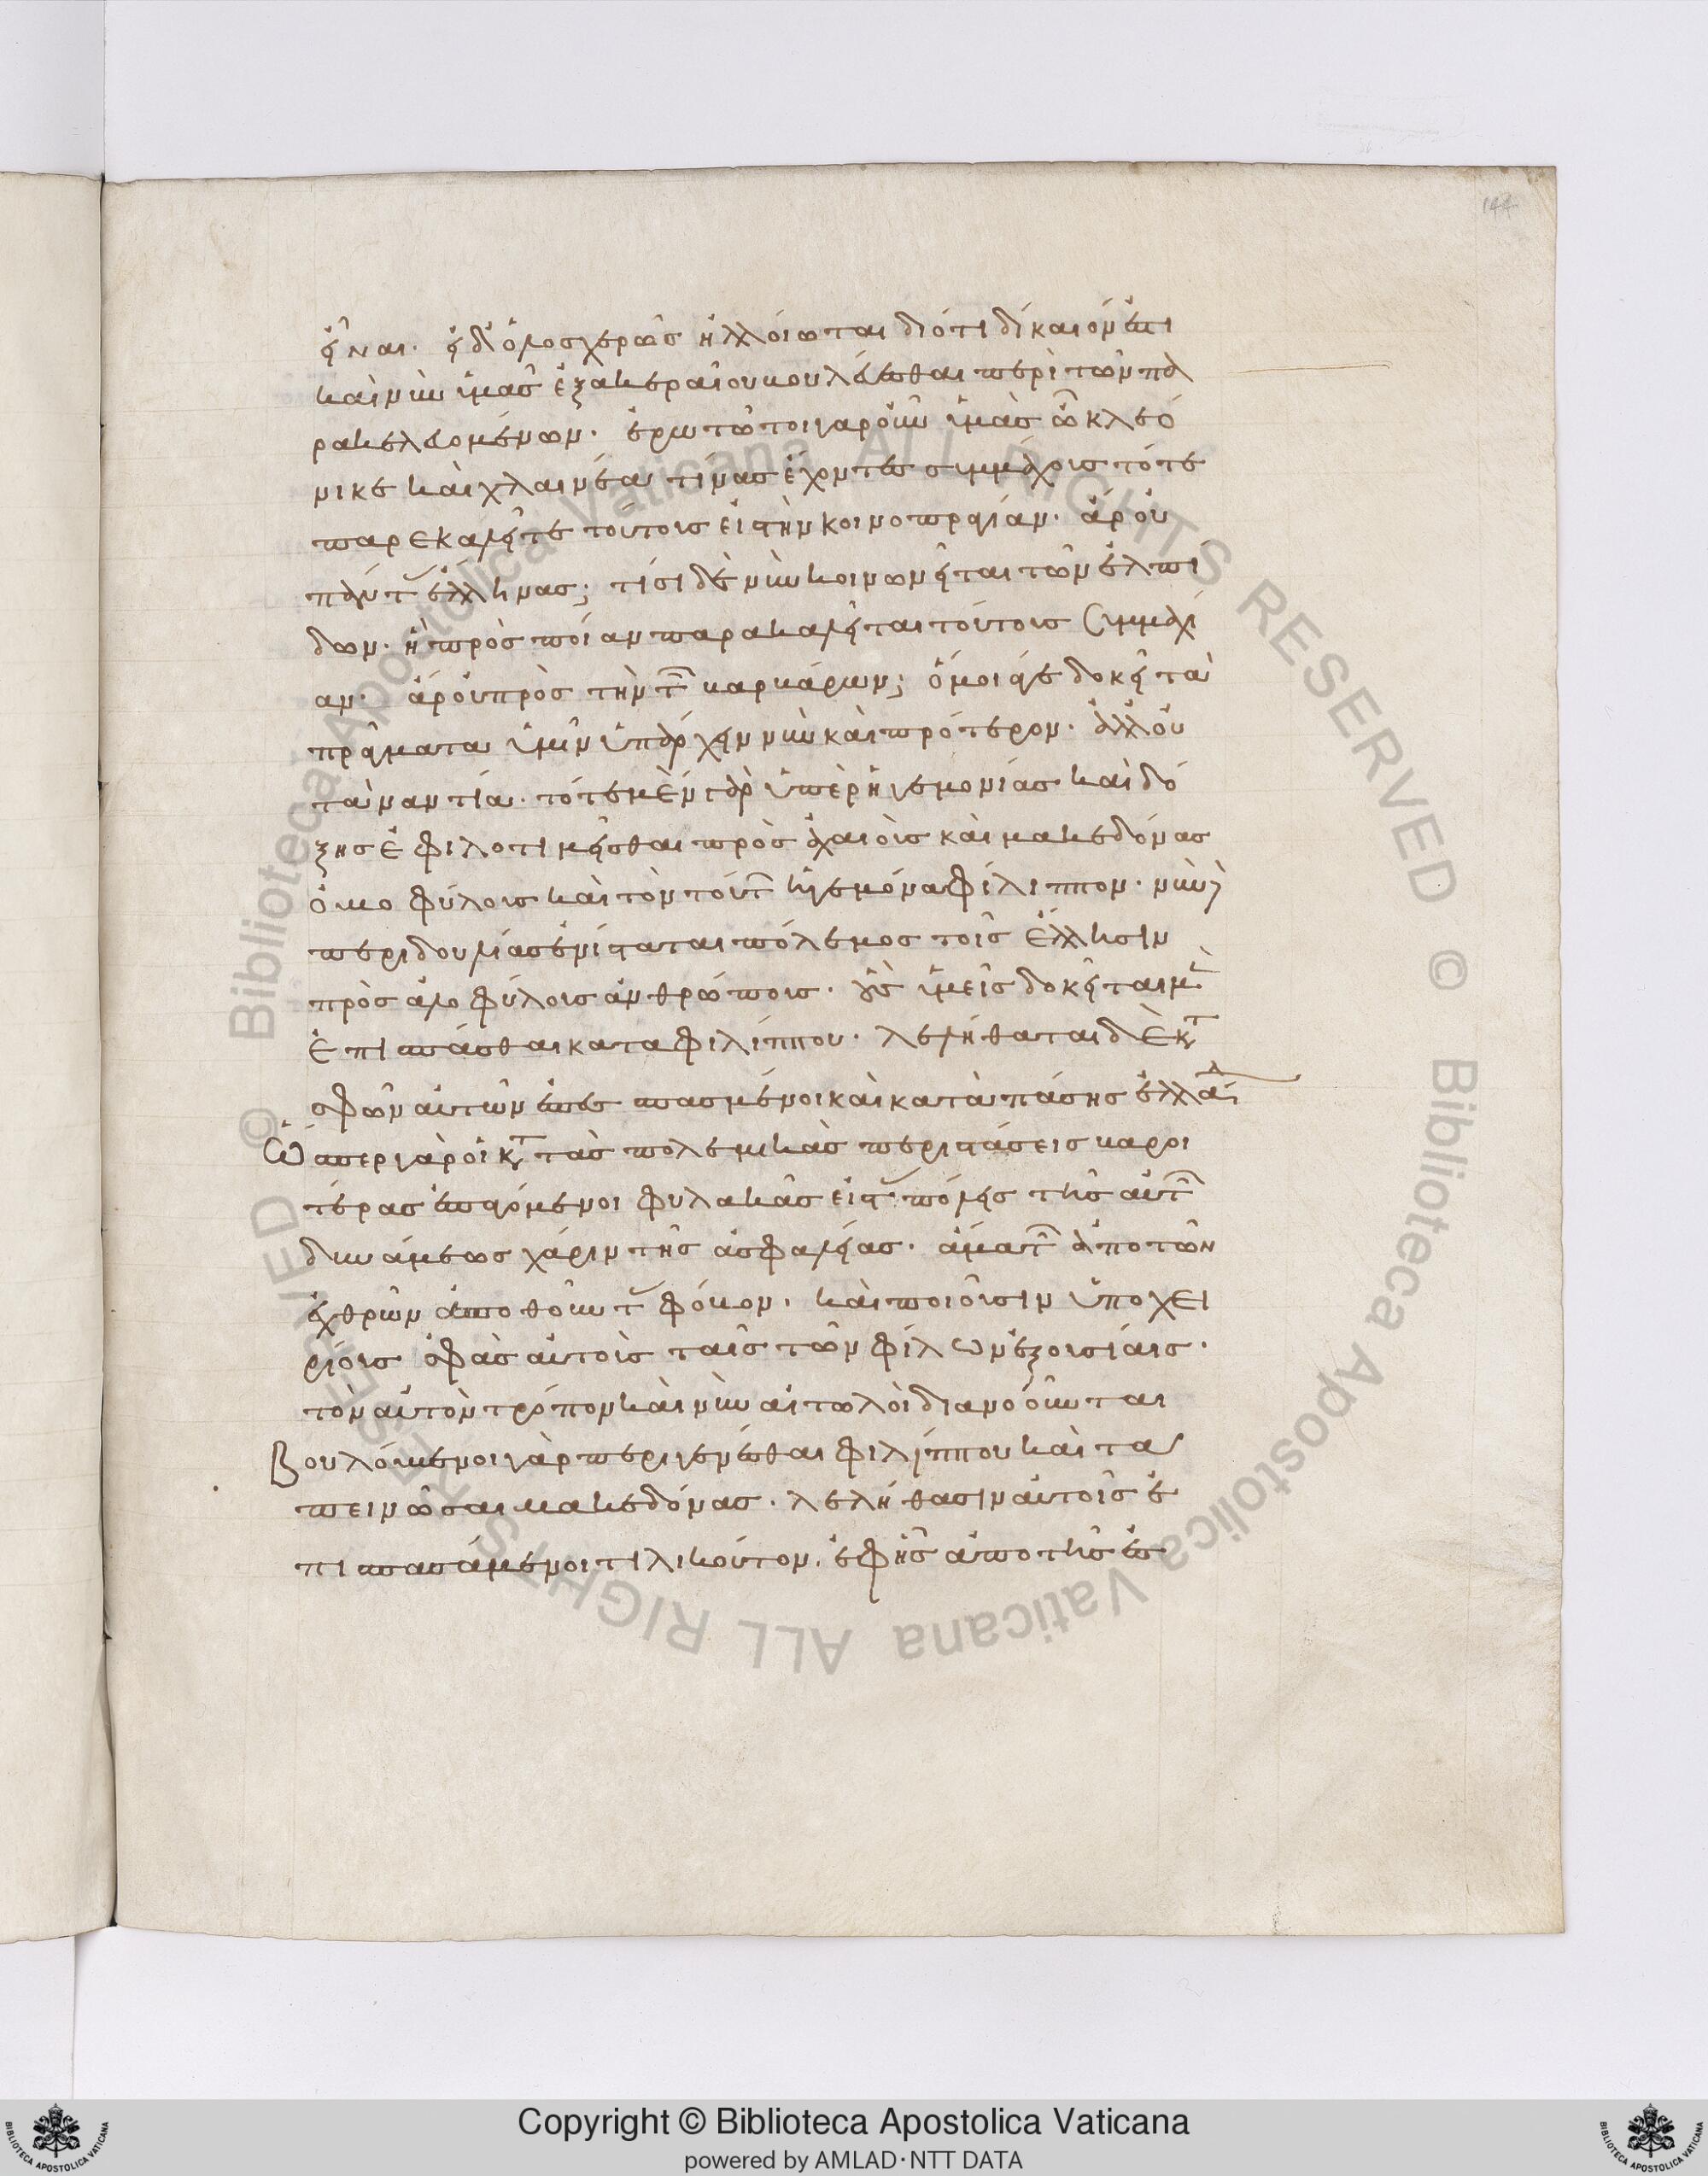 εἶναι· εἰ δ' ὁλοσχερῶς ἠλλοίωται διότι δίκαιόν ἐστι
καὶ νῦν ὑμᾶς ἐξακεραίου βουλεύεσθαι περὶ τῶν πα
ρακελευομένων· ἐρωτῶ τοιγαροῦν ὑμᾶς ὦ κλεό
νικε καὶ χλαινέα τίνας ἔχοντες συμμάχους τότε
παρεκαλεῖτε τούτους εἰς τὴν κοινοπραγίαν· ἆρ' οὐ
πάντας ἕλληνας; τίσι δὲ νῦν κοινωνεῖται τῶν ἐλπί
δων· ἢ πρὸς ποίαν παρακαλεῖται τούτους συμμαχί
αν· ἆρ' οὐ πρὸς τὴν τῶν βαρβάρων; ὅμοιά γε δοκεῖ τὰ
πράγματα ὑμῖν ὑπάρχειν νῦν καὶ πρότερον· ἀλλ' οὐ
τἀναντία· τότε μὲν γὰρ ὑπὲρ ἡγεμονίας καὶ δό
ξης ἐφιλοτιμεῖσθαι πρὸς ἀχαιοὺς καὶ μακεδόνας
ὁμοφύλους καὶ τὸν τούτων ἡγεμόνα φίλιππον· νῦν δὲ
περι δουλίας ἐνίσταται πόλεμος τοῖς ἕλλησιν
πρὸς ἀλοφύλους ἀνθρώπους· οὓς ὑμεῖς δοκεῖται μὲν
ἐπισπάσθαι κατα φιλίππου· λελήθαται δὲ κατὰ
σφῶν αὐτῶν ἐπεσπασμένοι καὶ κατὰ πάσης ἑλλάδος
Ὥσπερ γὰρ οἱ κατὰ τὰς πολεμικὰς περιστάσεις βαρυ
τέρας ἐπαγόμενοι φυλακὰς εἰς τὰς πόλεις τῆς αὐτῶν
δυνάμεως χάριν τῆς ἀσφαλείας· ἅμα τὸν ἀπὸ τῶν
ἐχθρῶν ἀποθοῦνται φόβον· καὶ ποιοῦσιν ὑποχει
ρίους σφᾶς αὐτοὺς ταῖς τῶν φίλων ἐξουσίαις·
τὸν αὐτὸν τρόπον καὶ νῦν αἰτωλοὶ διανοοῦνται
Βουλόμενοι γὰρ περιγενέσθαι φιλίππου καὶ τα
πεινῶσαι μακεδόνας· λελήθασιν αὐτοῖς ἐ
πισπασάμενοι τιλικοῦτον. ἐφῆς ἀπὸ τῆς ἑσ